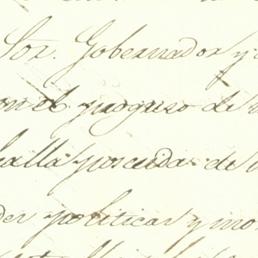 Sor. Gobernador y
en el progreso de
halla poseida de
der politicas y mo